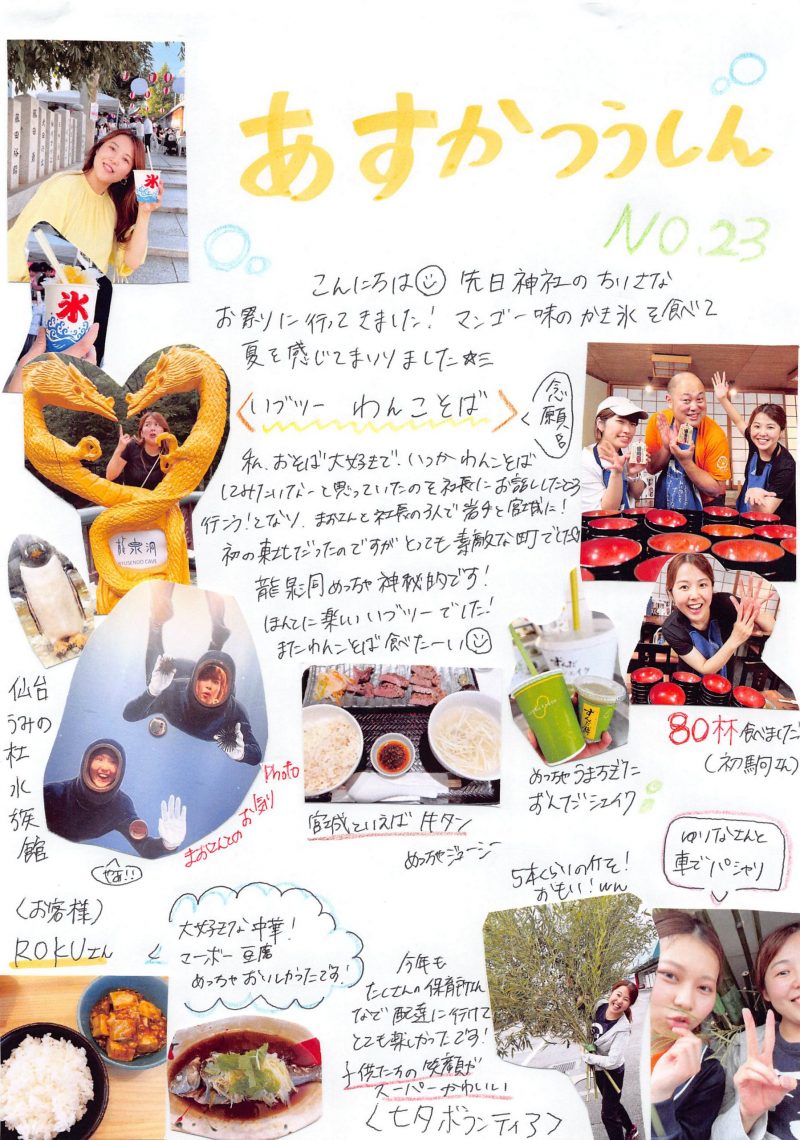 あすかつうしん
NO.23
こんにちは 先日神社のちいさな
お祭りに行ってきました！ マンゴー味のかき氷を食べて
夏を感じてまいりました☆ミ
氷
氷
〈いブツー わんこそば〉
念願
私、おそば大好きで、いつかわんこそば
してみたいなーと思っていたのを社長にお話ししたところ
行こう！となり、まおさんと社長の3人で岩手と宮城に！
初の東北だったのですがとっても素敵な町でした
龍泉洞めっちゃ神秘的です！
ほんとに楽しいいブツーでした！
またわんこそば食べたーい
龍泉洞
RYUSENDO CAVE
80杯食べました！
(初駒さん)
仙台
うみの
杜
水
族
館
まおさんとのお気り
Photo
やぁ!!
宮城といえば牛タン
めっちゃジューシー
めっちゃうますぎた
ずんだシェイク
〈お客様〉
ROKUさん
大好きな中華！
マーボー豆腐
めっちゃおいしかったです！
今年も
たくさんの保育所さん
など配達に行けて
とても楽しかったです！
子供たちの笑顔が
スーパーかわいい
〈七夕ボランティア〉
5本くらいの竹を！
おもい！ww
ゆりなさんと
車でパシャリ